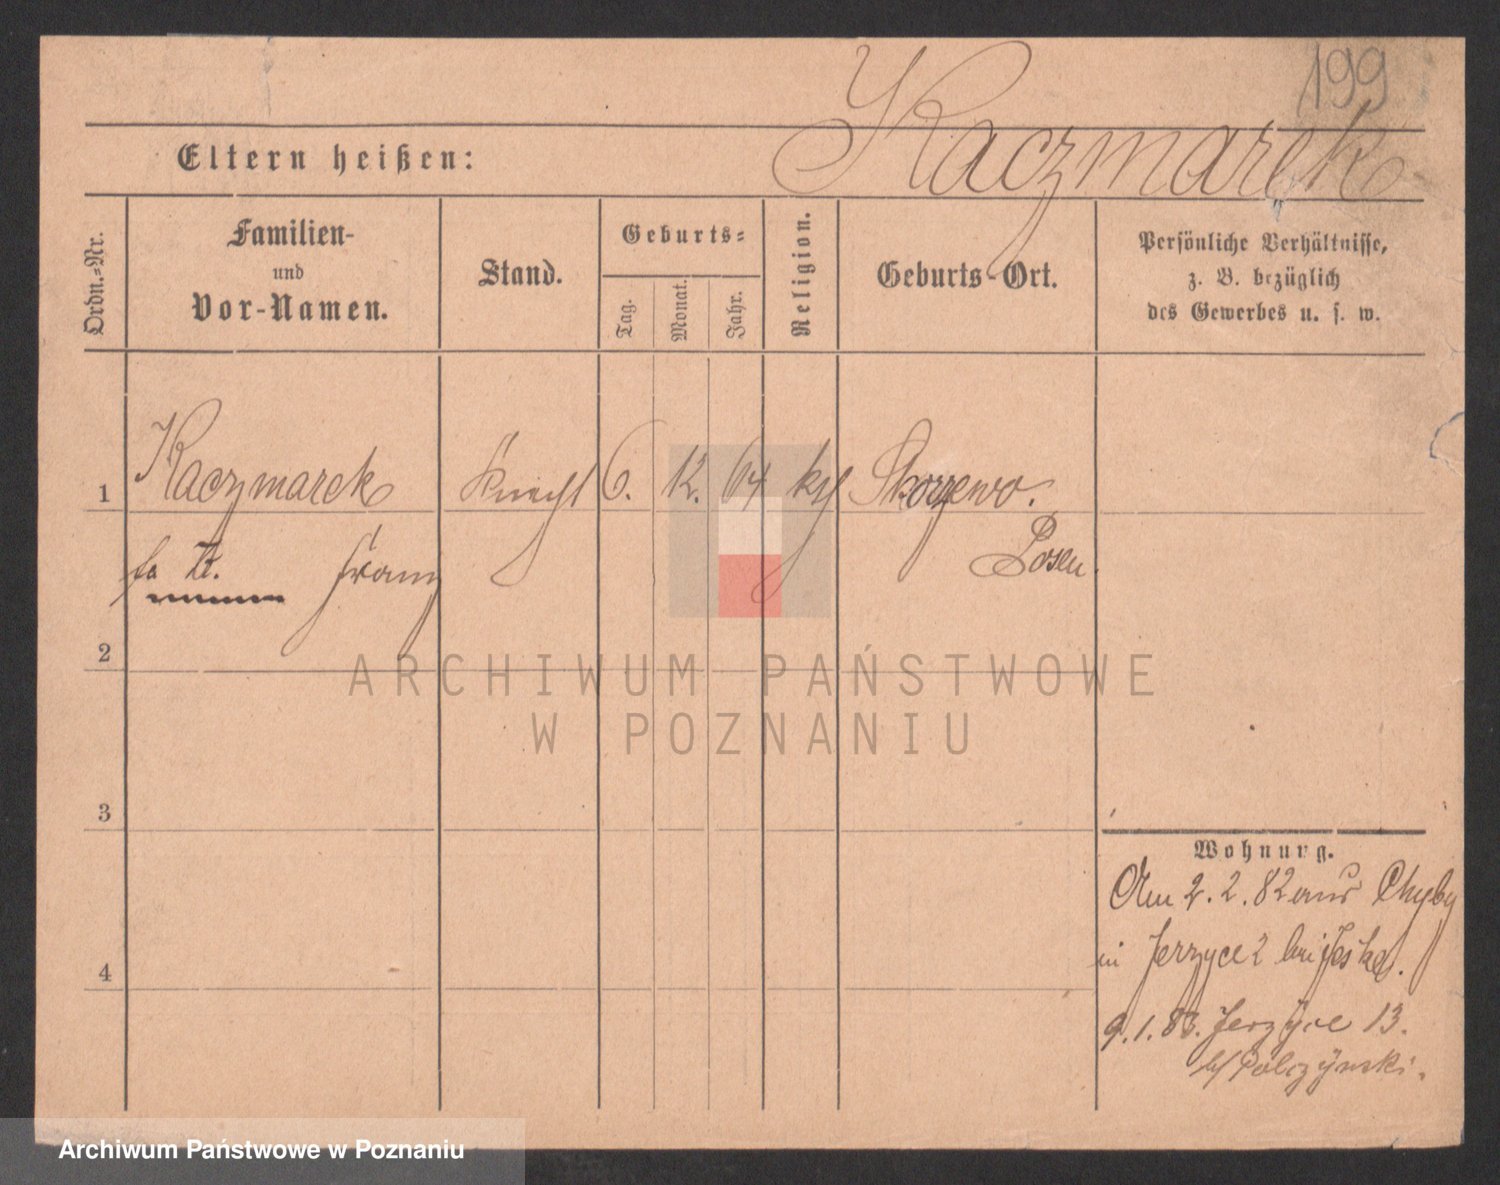 199
Kaczmarek
Eltern heißen:
Ordn.-Nr.
Familien-
und
Vor-Namen.
Stand.
Geburts-
Tag.
Monat.
Jahr.
Religion.
Geburts-Ort.
Persönliche Verhältnisse,
z. B. bezüglich
des Gewerbes u. s. w.
1 Kaczmarek Knecht 6. 12. 64 kth Skorzewo.
Franz Posen.
2
3
4
Wohnung.
Am 2. 2. 82 aus Chyby
in Jerzyce 2 bei
9. 1. 83. Jerzyce 13.
Polczynski.
ARCHIWUM PAŃSTWOWE
W POZNANIU
Archiwum Państwowe w Poznaniu